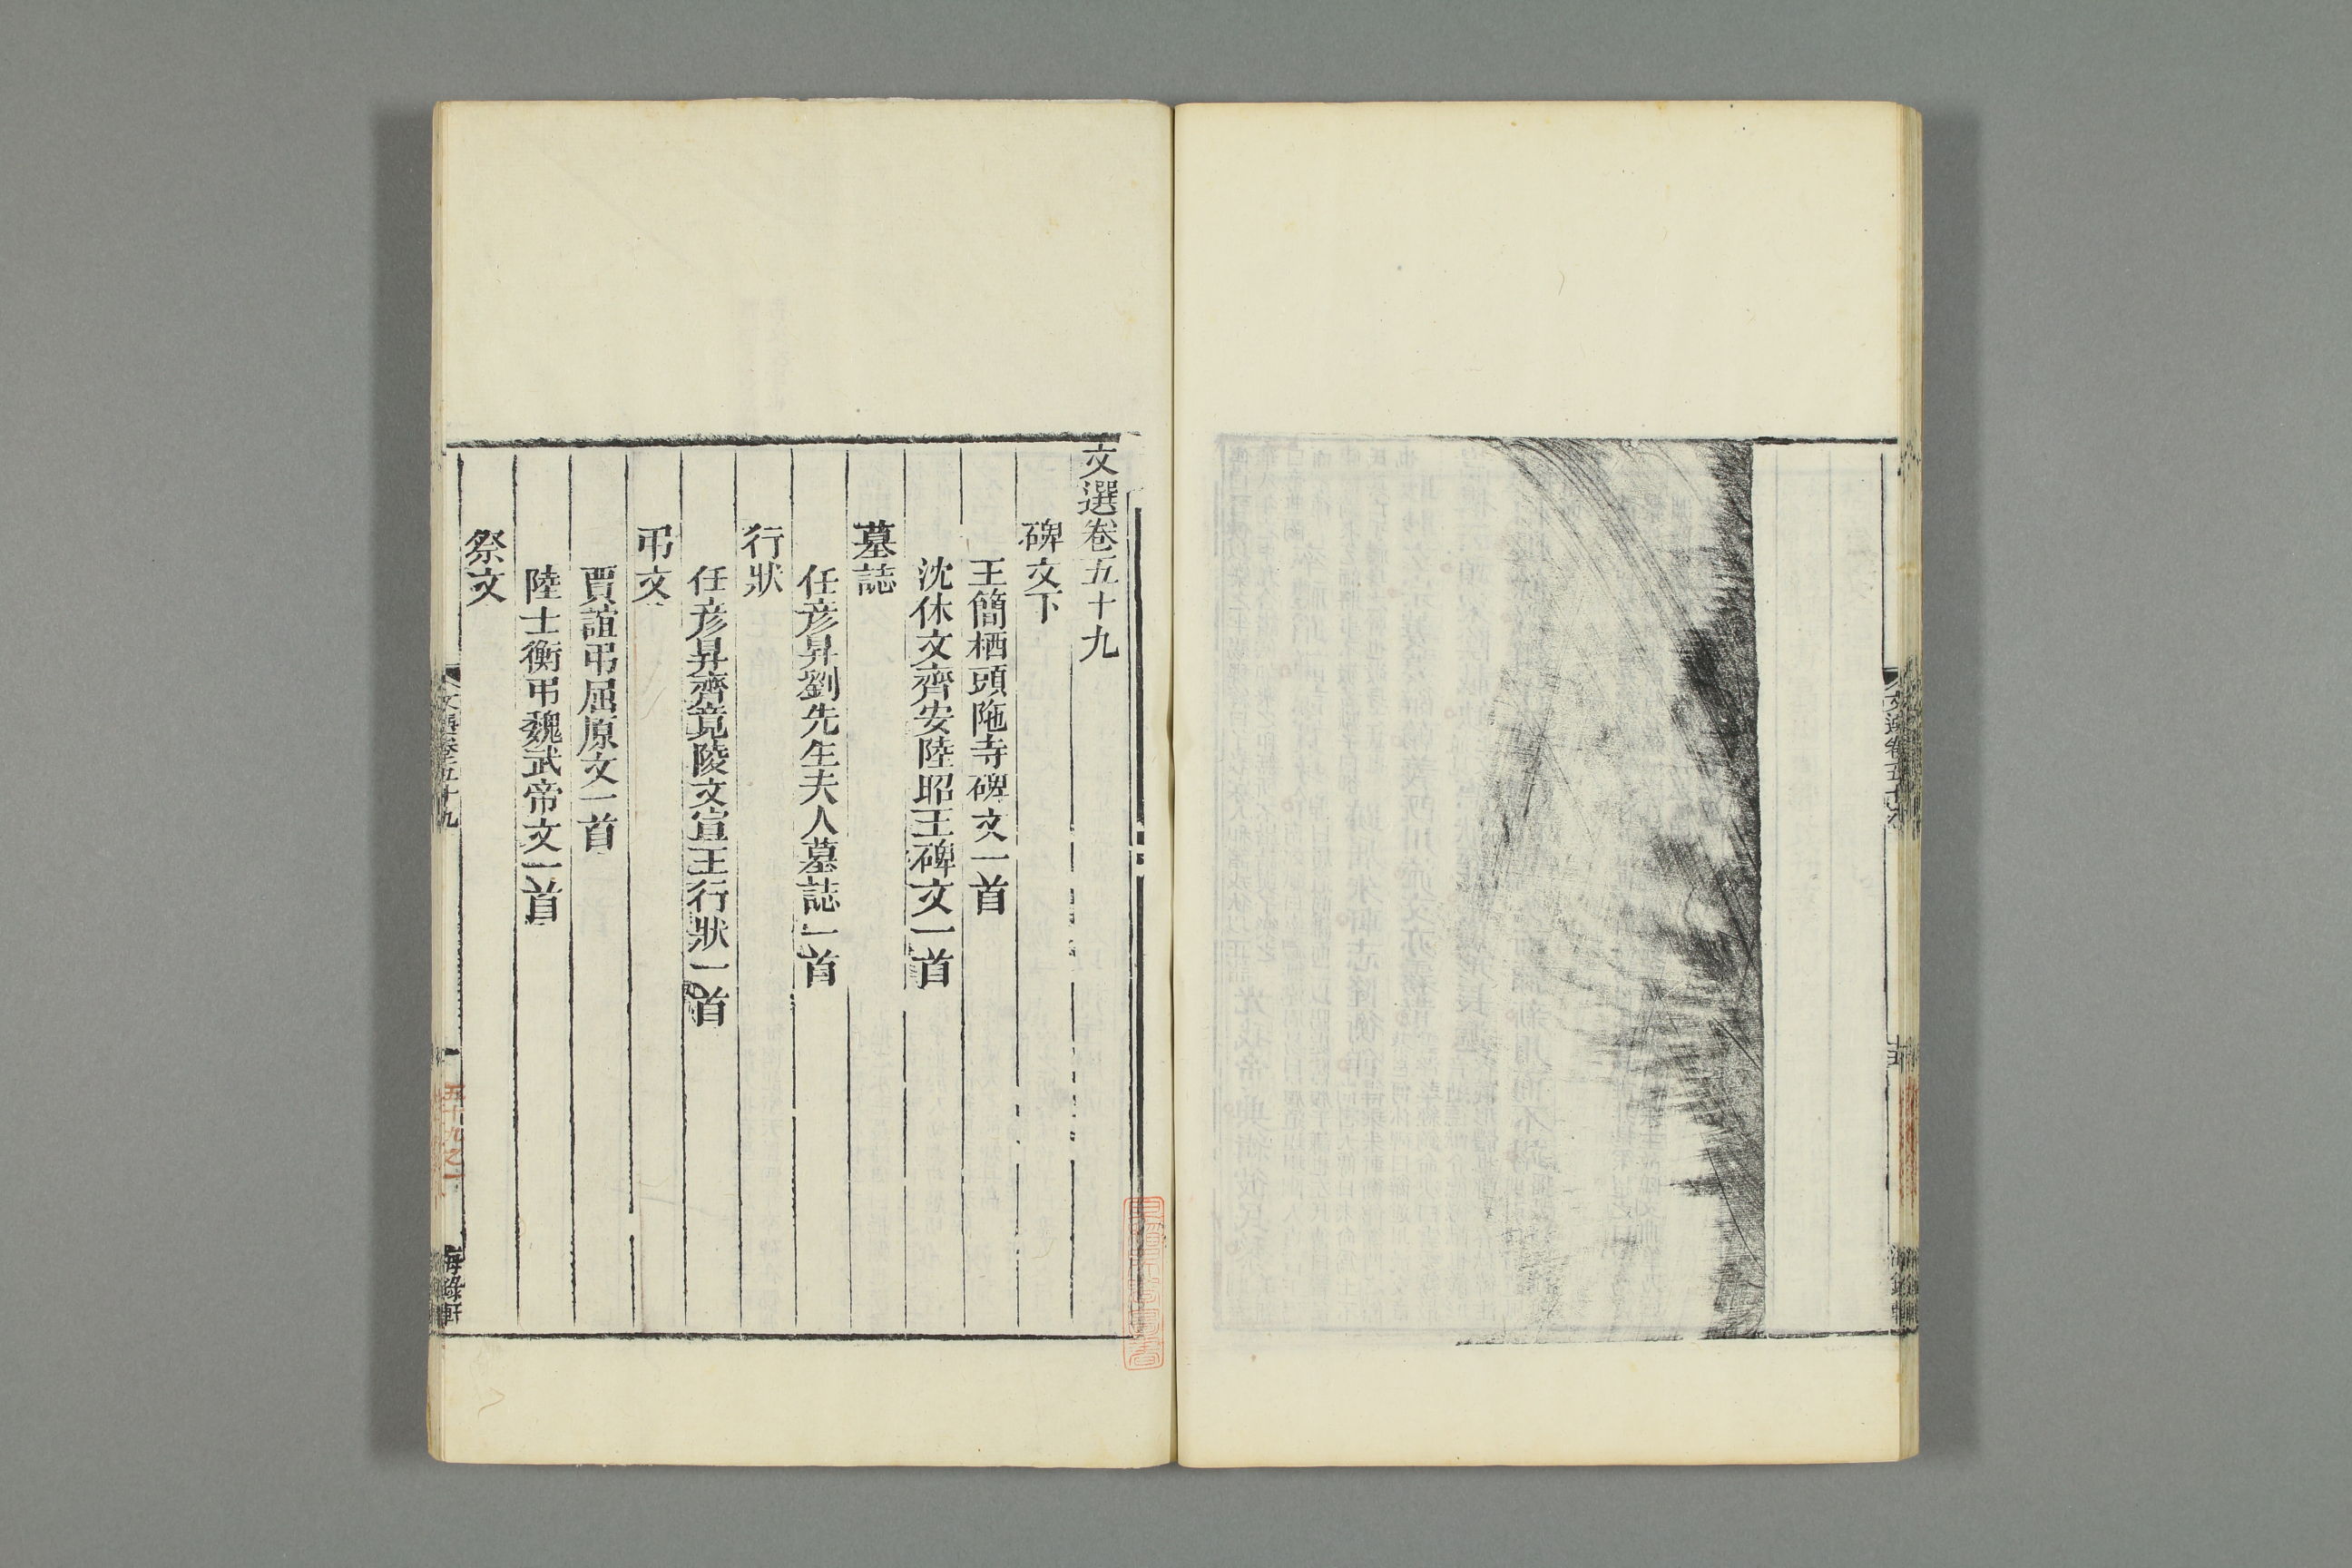 文選卷五十九
碑文下
王簡栖頭陁寺碑文一首
沈休文齊安陸昭王碑文一首
墓誌
任彦昇劉先生夫人墓誌一首
行狀
任彦昇齊竟陵文宣王行狀一首
弔文
賈誼弔屈原文一首
陸士衡弔魏武帝文一首
祭文
文選卷五十九
一
五十九之一
海錄軒